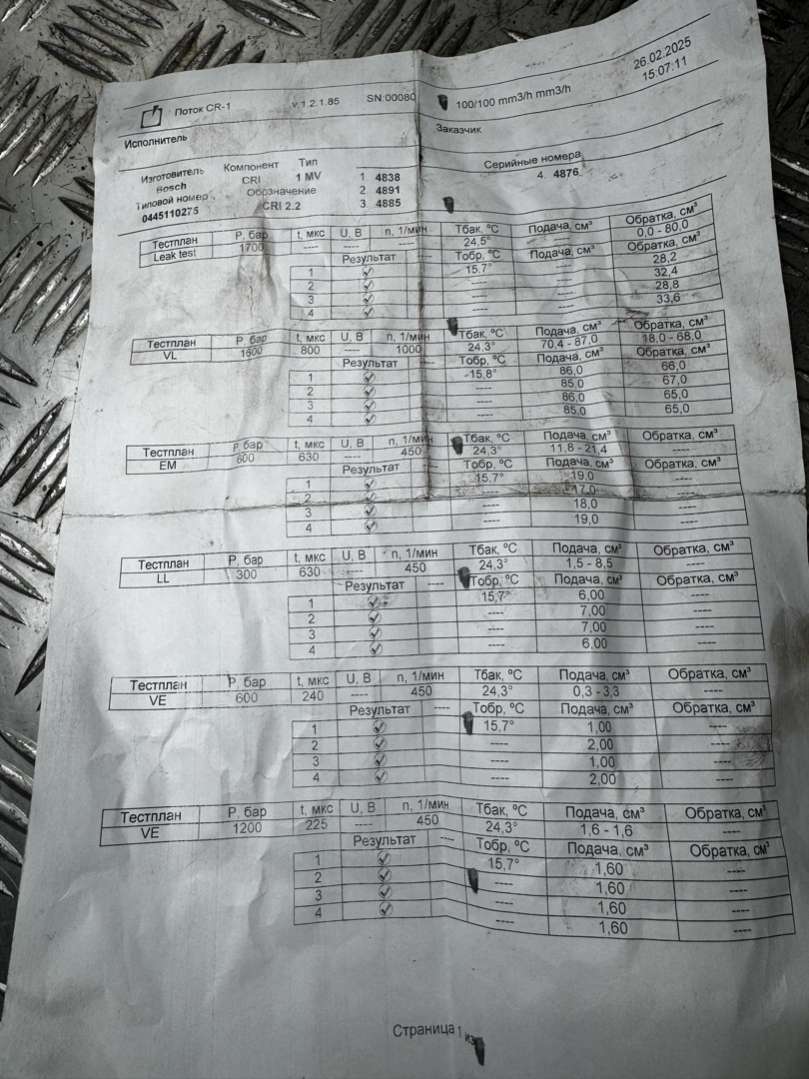 Поток CR-1 v.1.2.1.85 SN:00080 100/100 mm3/h mm3/h 26.02.2025
15:07:11
Исполнитель Заказчик
Изготовитель Компонент Тип Серийные номера
Bosch CRI 1 MV 1 4838 4 4876
Типовой номер Обозначение 2 4891
0445110275 CRI 2.2 3 4885
Тестплан P, бар t, мкс U, В n, 1/мин Тбак, °С Подача, см³ Обратка, см³
Leak test 1700 ---- ---- ---- 24,5° ---- 0,0 - 80,0
Результат ---- Тобр, °С Подача, см³ Обратка, см³
1 15.7° ---- 28,2
2 ---- ---- 32,4
3 ---- ---- 28,8
4 ---- ---- 33,6
Тестплан P, бар t, мкс U, В n, 1/мин Тбак, °С Подача, см³ Обратка, см³
VL 1600 800 ---- 1000 24,3° 70,4 - 87,0 18,0 - 68,0
Результат ---- Тобр, °С Подача, см³ Обратка, см³
1 15,8° 86,0 66,0
2 ---- 85,0 67,0
3 ---- 86,0 65,0
4 ---- 85,0 65,0
Тестплан P, бар t, мкс U, В n, 1/мин Тбак, °С Подача, см³ Обратка, см³
EM 600 630 ---- 450 24,3° 11,8 - 21,4 ----
Результат ---- Тобр, °С Подача, см³ Обратка, см³
1 15.7° 19,0 ----
2 ---- 17,0 ----
3 ---- 18,0 ----
4 ---- 19,0 ----
Тестплан P, бар t, мкс U, В n, 1/мин Тбак, °С Подача, см³ Обратка, см³
LL 300 630 ---- 450 24,3° 1,5 - 8,5 ----
Результат ---- Тобр, °С Подача, см³ Обратка, см³
1 15,7° 6,00 ----
2 ---- 7,00 ----
3 ---- 7,00 ----
4 ---- 6,00 ----
Тестплан P, бар t, мкс U, В n, 1/мин Тбак, °С Подача, см³ Обратка, см³
VE 600 240 ---- 450 24,3° 0,3 - 3,3 ----
Результат ---- Тобр, °С Подача, см³ Обратка, см³
1 15,7° 1,00 ----
2 ---- 2,00 ----
3 ---- 1,00 ----
4 ---- 2,00 ----
Тестплан P, бар t, мкс U, В n, 1/мин Тбак, °С Подача, см³ Обратка, см³
VE 1200 225 ---- 450 24,3° 1,6 - 1,6 ----
Результат ---- Тобр, °С Подача, см³ Обратка, см³
1 15,7° 1,60 ----
2 ---- 1,60 ----
3 ---- 1,60 ----
4 ---- 1,60 ----
Страница 1 из